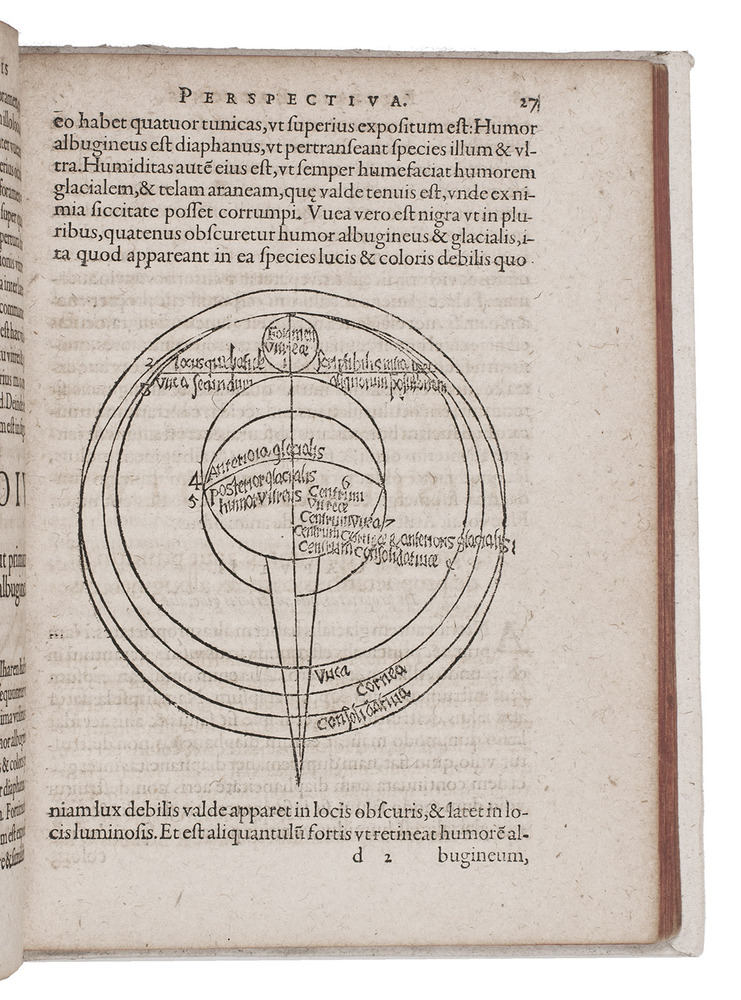 PERSPECTIVA. 27
eo habet quatuor tunicas, vt superius expositum est: Humor
albugineus est diaphanus, vt pertranseant species illum & vl-
tra. Humiditas autē eius est, vt semper humefaciat humorem
glacialem, & telam araneam, quę valde tenuis est, vnde ex ni-
mia siccitate posset corrumpi. Vuea vero est nigra vt in plu-
ribus, quatenus obscuretur humor albugineus & glacialis, i-
ta quod appareant in ea species lucis & coloris debilis quo
Foramen
Vueæ
2 locus
3 Vuea secundum aliquorum
4 Anteriora glacialis
5 Posterior glacialis
humor vitreus
6
Centrum
Vitreæ
Centrum Vueæ 7
Centrum Corneæ & anterioris glacialis
Centrum Consolidatiuæ
Vuea
Cornea
Consolidatiua
niam lux debilis valde apparet in locis obscuris, & latet in lo-
cis luminosis. Et est aliquantulū fortis vt retineat humorē al-
d 2 bugineum,